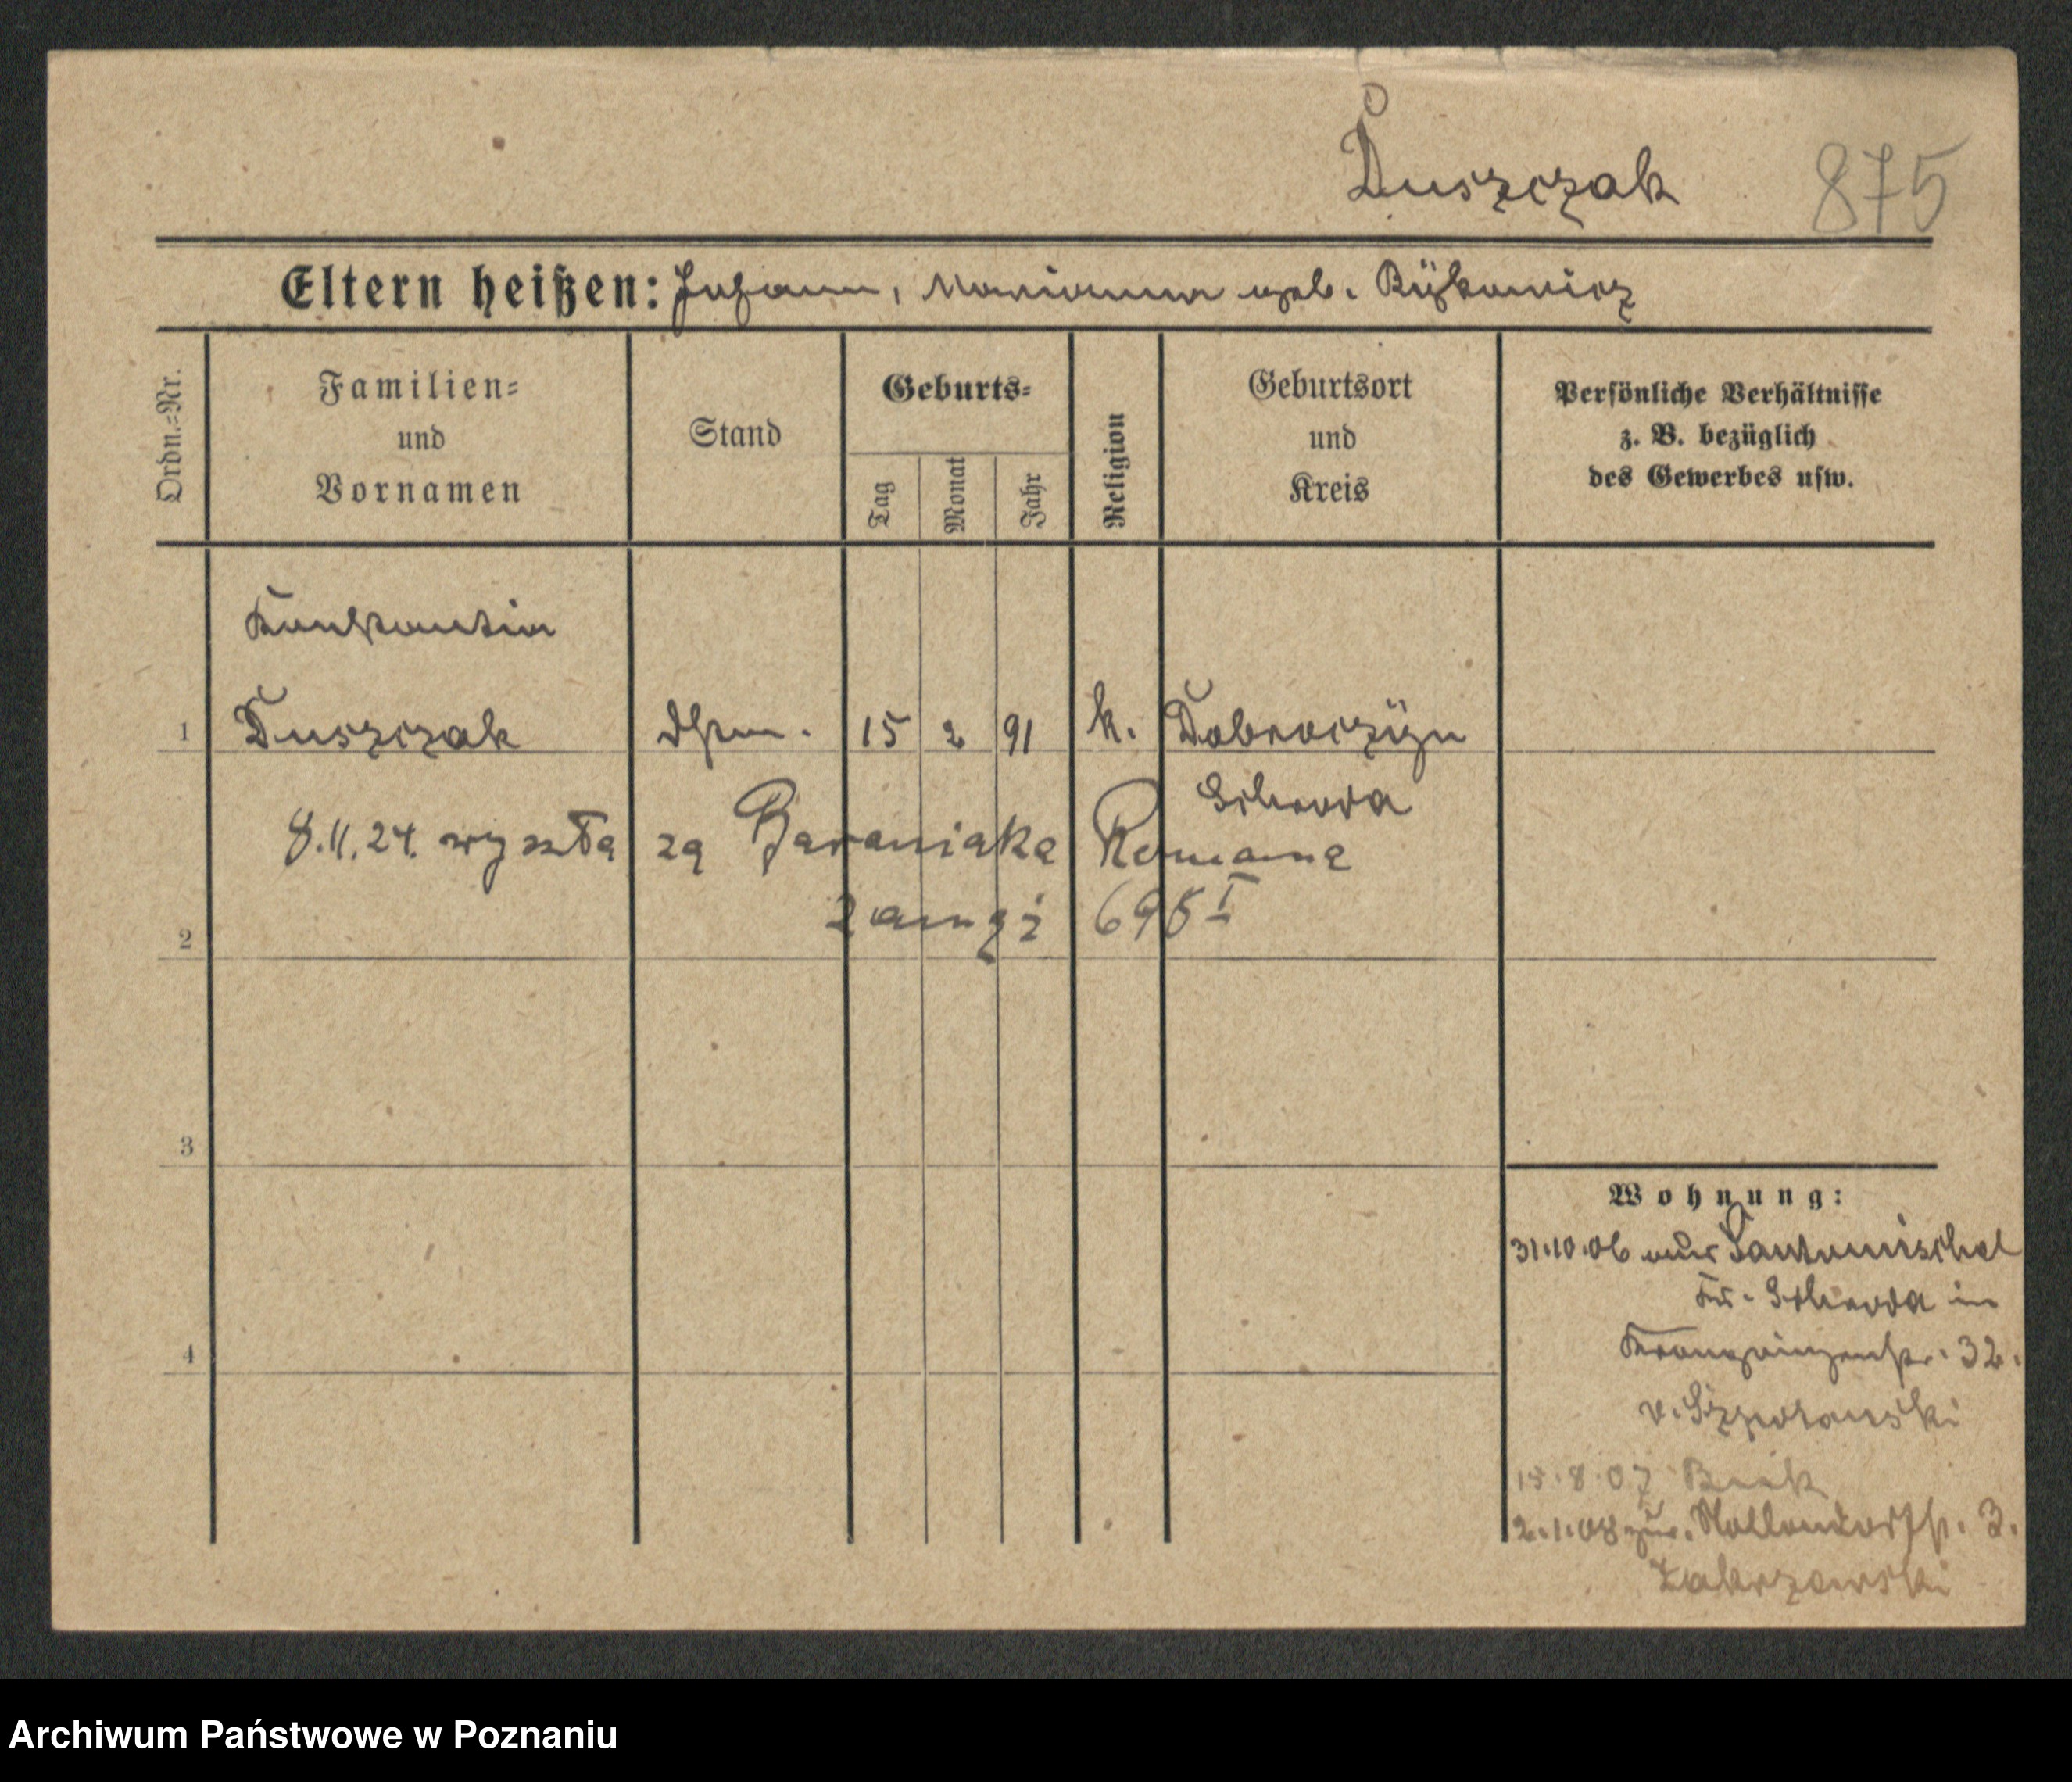 Duszczak 875
Eltern heißen: Johann, Marianna geb. Rÿkowicz
Ordn.=Nr.
Familien=
und
Vornamen
Stand
Geburts=
Tag
Monat
Jahr
Religion
Geburtsort
und
Kreis
Persönliche Verhältnisse
z. B. bezüglich
des Gewerbes usw.
Konstantia
1 Duszczak 15 2 91 k. Dobroczÿn
Schroda
8.11.24. wyszła za Baraniaka Romana
zamęż 695 I
2
3
4
Wohnung:
31.10.06 aus Santomischel
Kr. Schroda in
Kronprinzenstr. 32.
v.
15.8.07
2.1.08 zur. Nollendorfstr. 3.
Zakrzewski
Archiwum Państwowe w Poznaniu